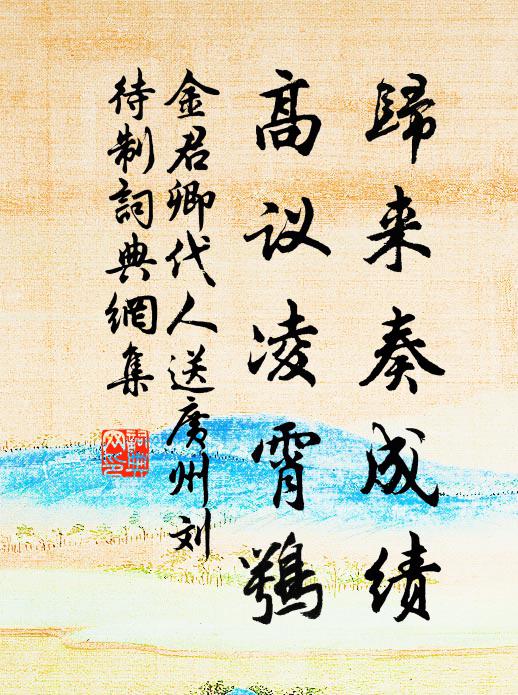 歸来奏成绩
高议凌霄鶚
金君卿代人送廣州刘
待制詞典網集